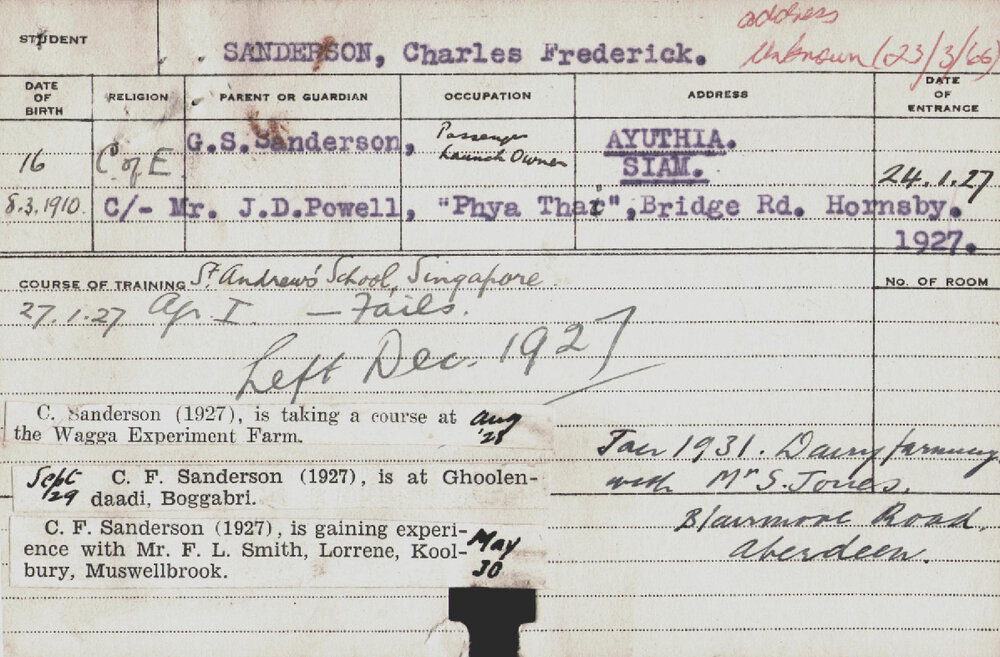 STUDENT
SANDERSON, Charles Frederick.
address
Unknown (23/3/66)
DATE OF BIRTH
RELIGION
PARENT OR GUARDIAN
OCCUPATION
ADDRESS
DATE OF ENTRANCE
16
C of E
G.S.Sanderson,
Passenger
Launch Owner
AYUTHIA.
SIAM.
24.1.27
8.3.1910.
C/- Mr. J.D.Powell, "Phya Thai", Bridge Rd. Hornsby.
1927.
COURSE OF TRAINING St Andrew's School, Singapore
No. OF ROOM
27.1.27 Agr I — Fails.
Left Dec. 1927
C. Sanderson (1927), is taking a course at
the Wagga Experiment Farm.
Aug
'28
Sept
29
C. F. Sanderson (1927), is at Ghoolen-
daadi, Boggabri.
C. F. Sanderson (1927), is gaining experi-
ence with Mr. F. L. Smith, Lorrene, Kool-
bury, Muswellbrook.
May
30
1931. Dairy farming
with Mr S. Jones.
Blairmore Road.
Aberdeen.